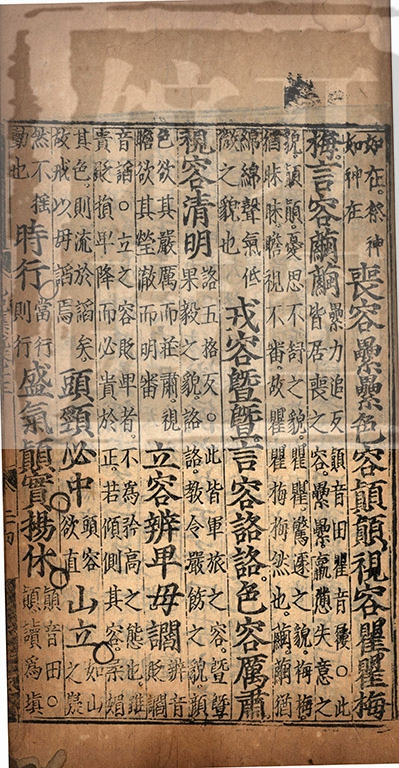 如在。祭神
如神在
喪容纍纍色容顚顚視容瞿瞿梅
梅言容繭繭
纍力追反顚音田瞿音屨。此
皆居喪之容纍纍羸憊失意之
貌顚顚憂思不舒之貌瞿瞿驚遽之貌梅梅
猶昧昧瞻視不審故瞿瞿梅梅然也繭繭猶
綿綿聲氣低
微之貌也
戎容曁曁言容詻詻色容厲肅
視容清明
詻五格反。此皆軍旅之容曁曁
果毅之貌詻詻教令嚴飭之貌顏
色欲其嚴厲而莊肅視
瞻欲其瑩澈而明審
立容辨卑毋讇
辨音
貶讇
音諂。立之容貶卑者不爲矜高之態也雖
貴貶損卑降而必貴於正若傾側其容柔媚
其色則流於諂矣
故戒以毋諂焉
頭頸必中
頭容
欲直
山立
如山
之嶷
然不搖
動也
時行
當行
則行
盛氣顚實揚休
顚音田。
顚讀爲塡